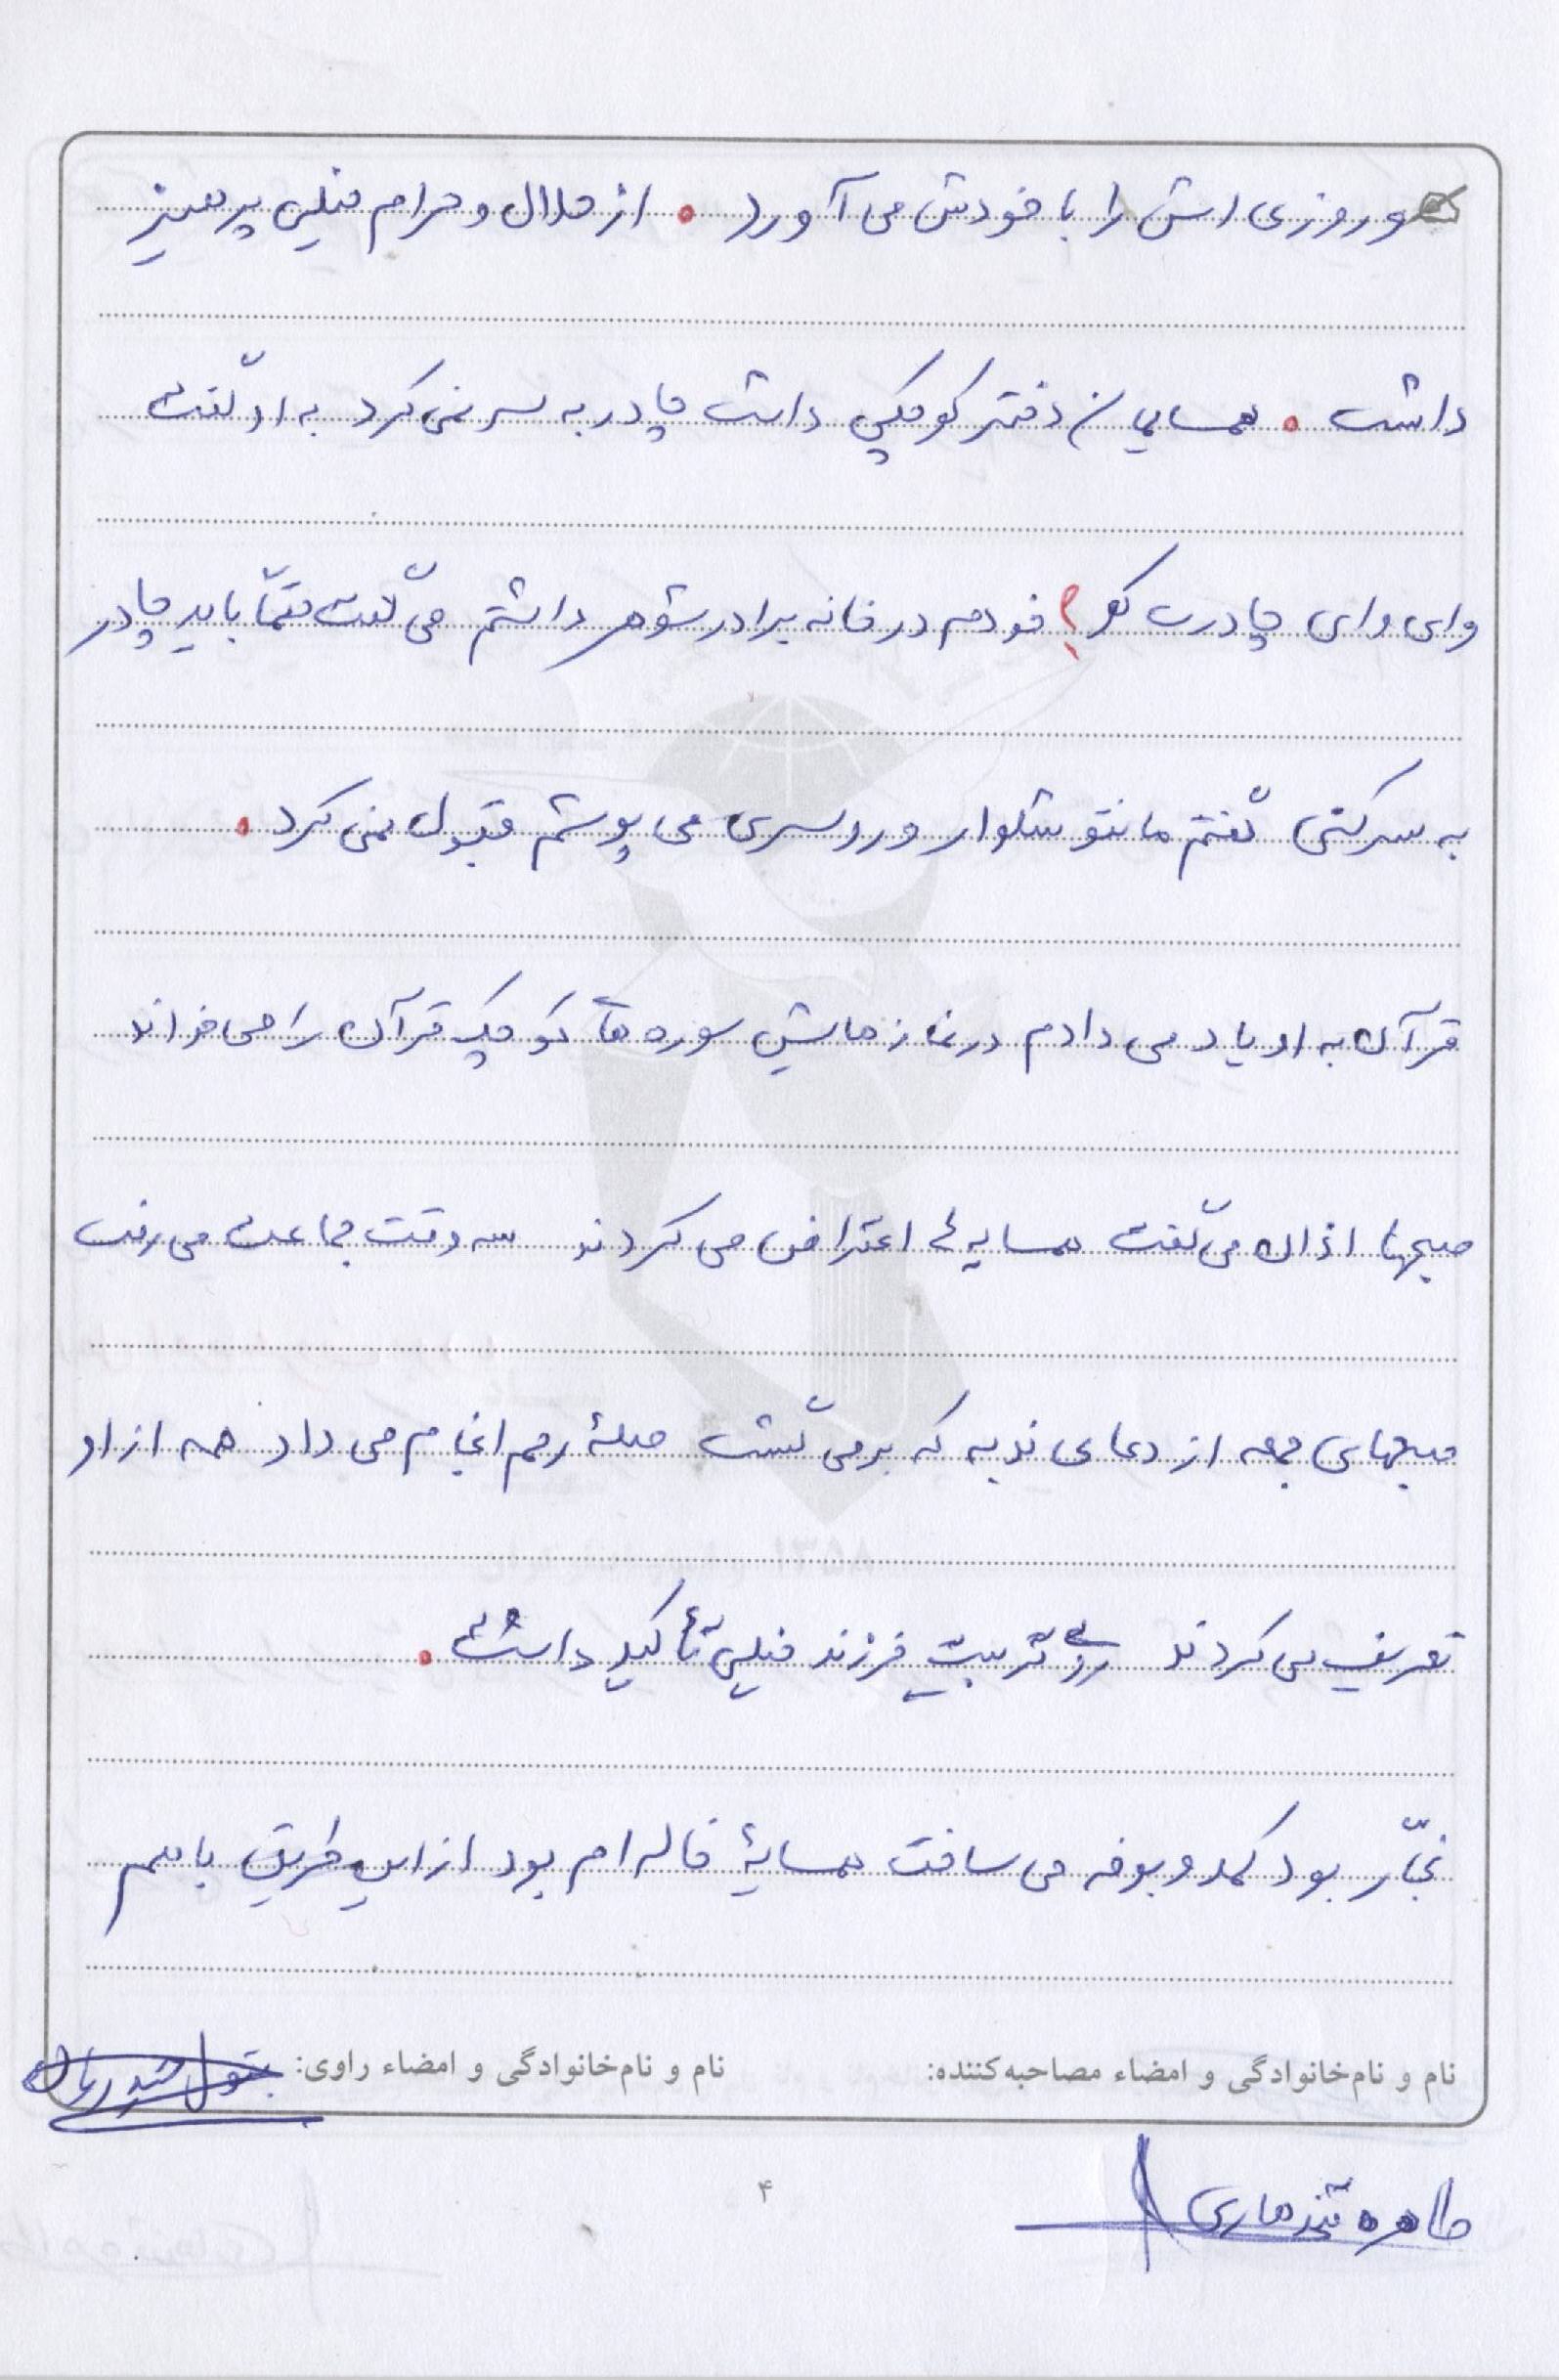 و روزی اش را با خودش می آورد. از حلال و حرام خیلی پرهیز
داشت. همسایمان دختر کوچکی داشت چادر به سر نمی کرد به او گفت
وای وای چادرت کو؟ خودم در خانه برادر شوهر داشتم می گفت حتماً باید چادر
به سر کنی گفتم مانتو شلوار و روسری می پوشم قبول نمی کرد.
قرآن به او یاد می دادم در نمازهایش سوره های کوچک قرآن را می خواند
صبحها اذان می گفت همسایه ها اعتراض می کردند سه وقت جماعت می رفت
صبحهای جمعه از دعای ندبه که برمی گشت صلۀ رحم انجام می داد همه از او
تعریف می کردند روی تربیت فرزند خیلی تأکید داشت.
نجّار بود کمد و بوفه می ساخت همسایۀ خاله ام بود از این طریق با هم
نام و نام‌خانوادگی و امضاء مصاحبه‌کننده: نام و نام‌خانوادگی و امضاء راوی: بتول
طاهره
۴
۱۳۵۸